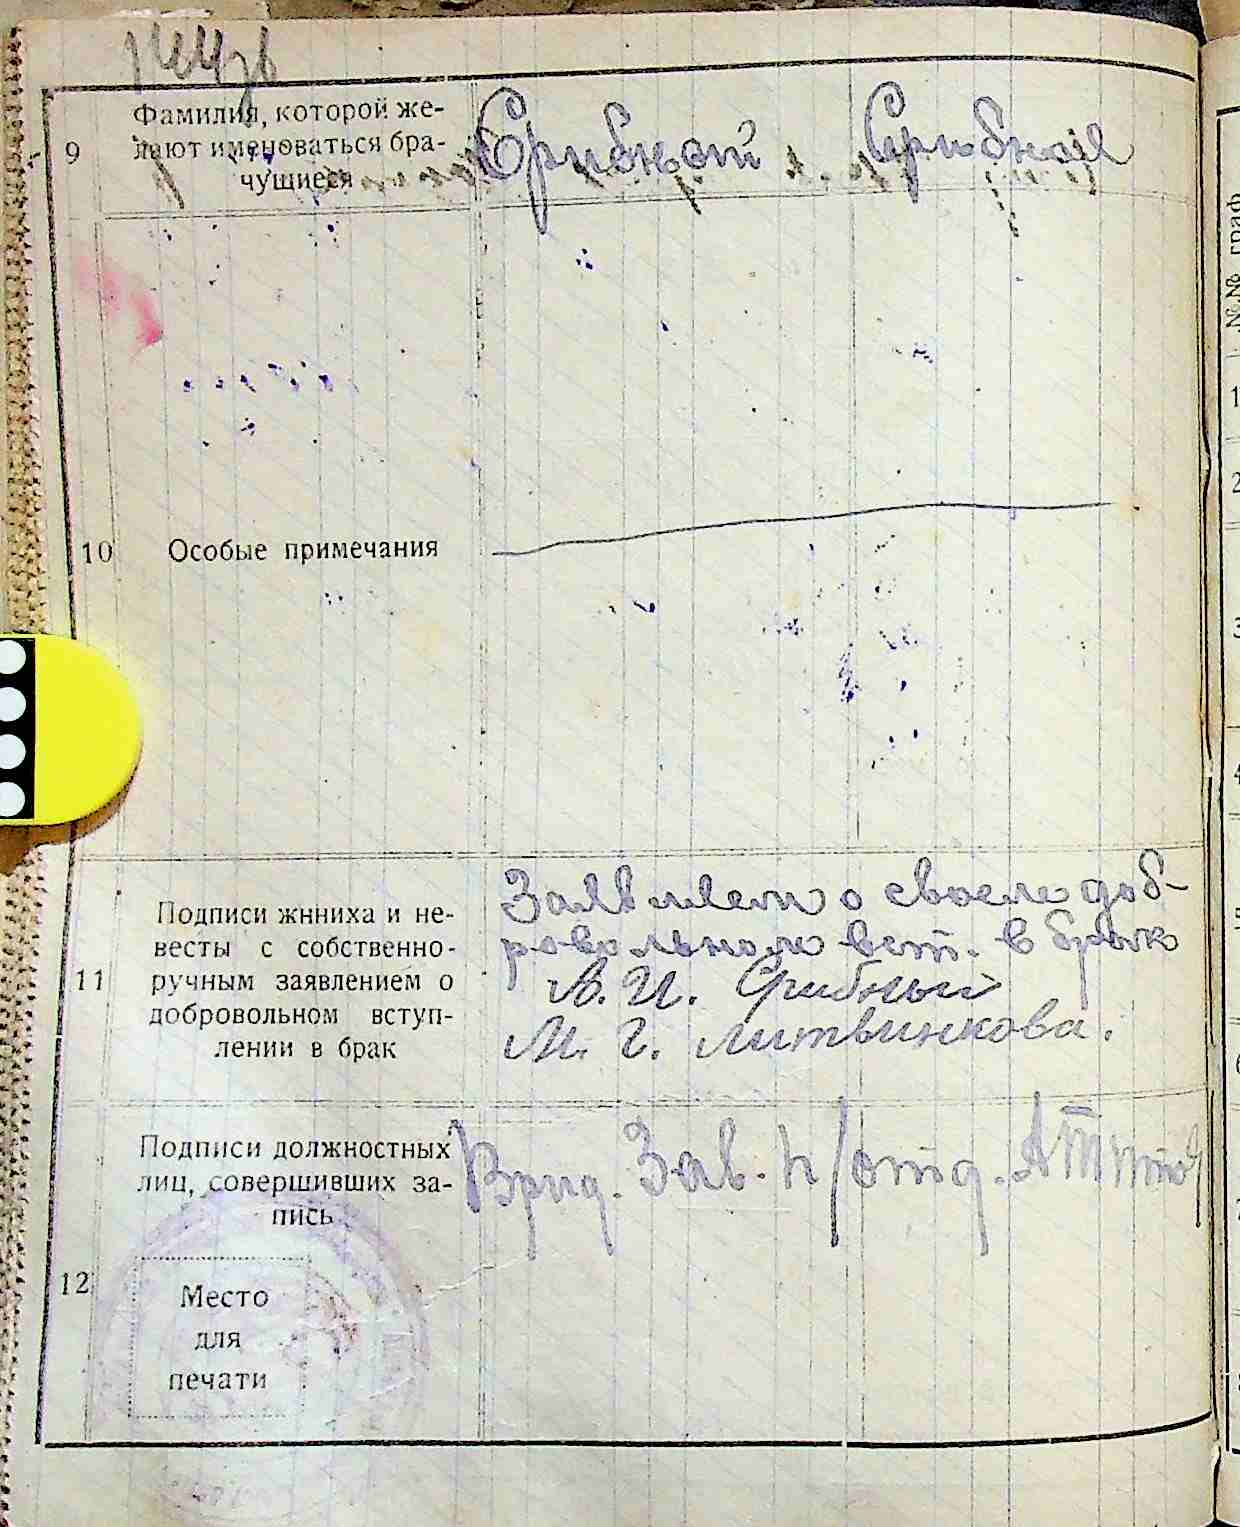 9 Фамилия, которой же-
лают именоваться бра-
чущиеся
Срибной Срибная
10 Особые примечания
11 Подписи жнниха и не-
весты с собственно-
ручным заявлением о
добровольном вступ-
лении в брак
Заявляем о своем доб-
ровольном вст. в брак
А. И. Срибный
М. Г. Литвинкова.
12 Подписи должностных
лиц, совершивших за-
пись
Врид. Зав. п/отд.
Место
для
печати
№№ граф
1
2
3
4
5
6
7